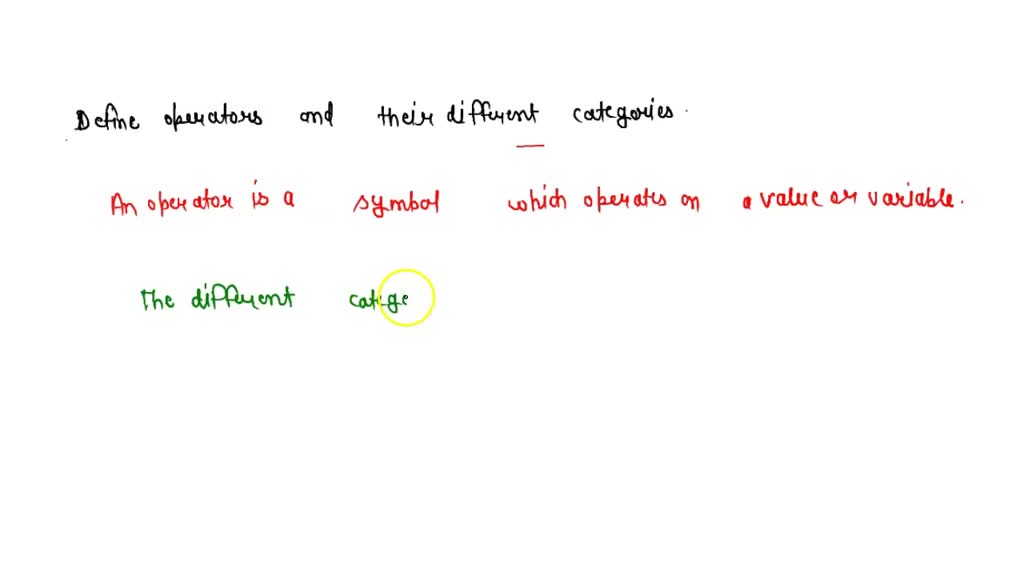 Define operators and their different categories.
An operator is a symbol which operates on a value or variable.
The different catego